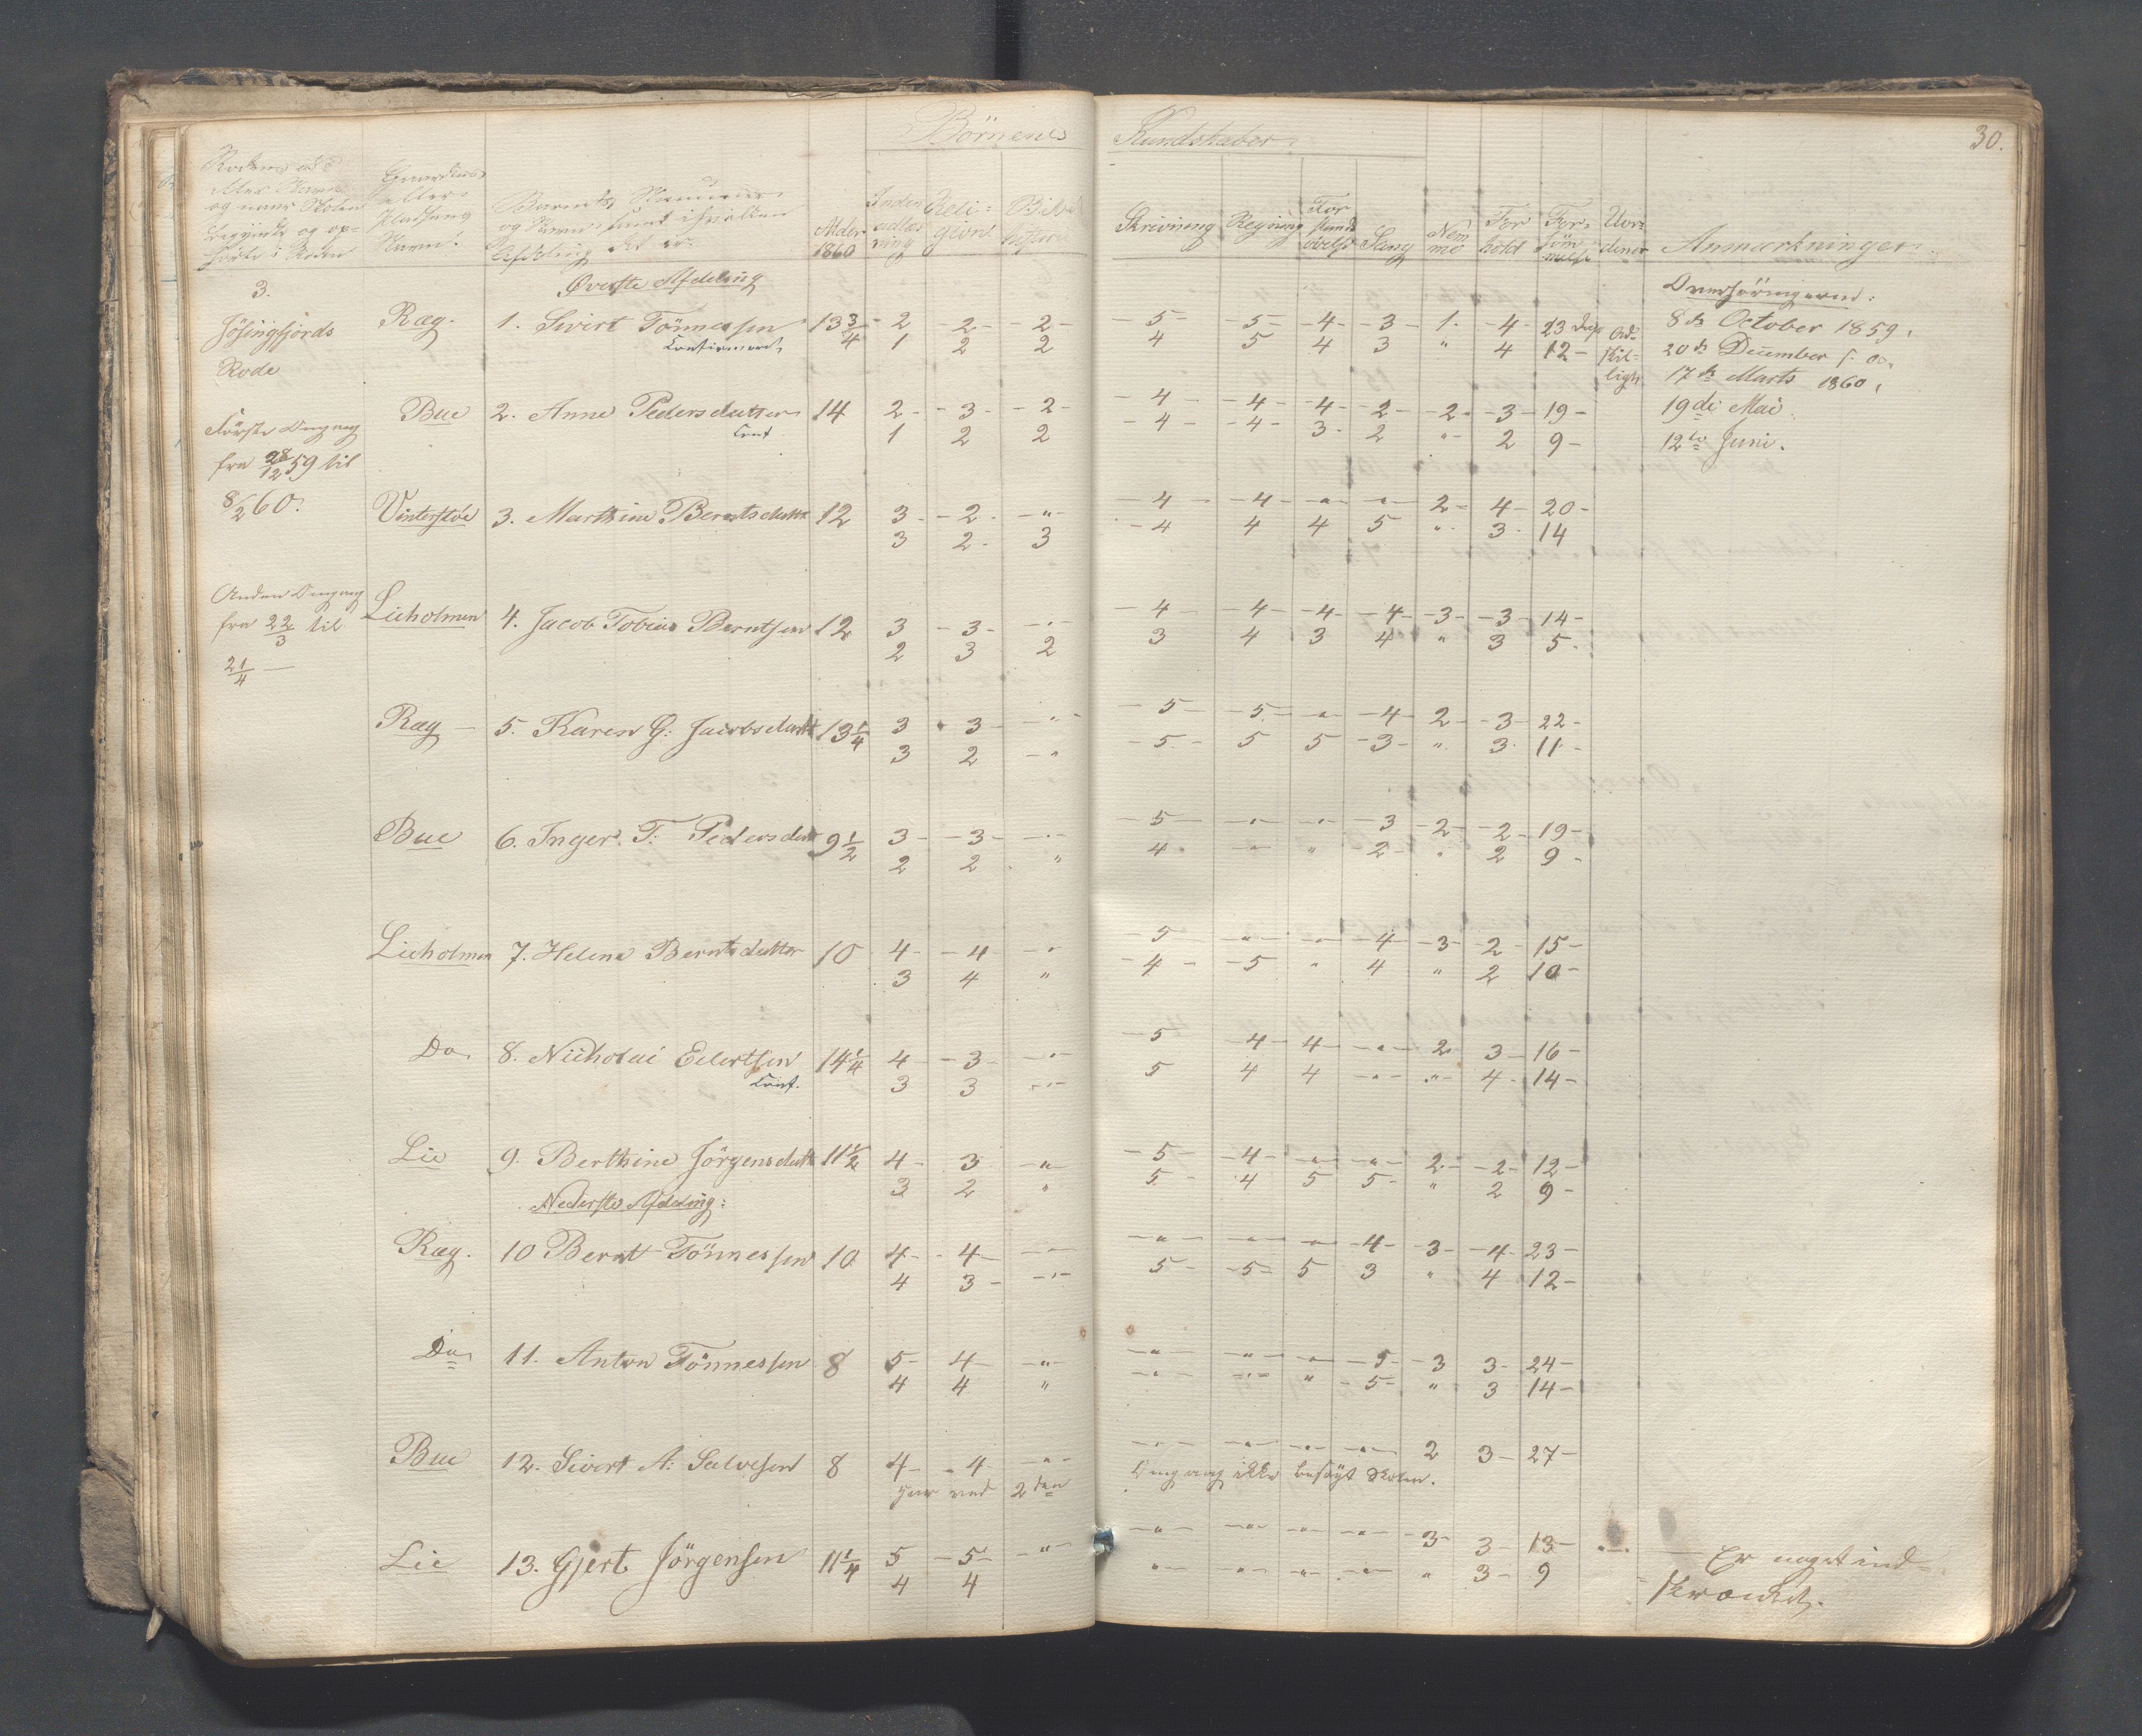 Börnenes Kundskaber. 30.
Barnets Nummer og Navn samt i hvilken Afdeling det er. Alder 1860 Inden- adlæs- ning Reli- gion Skrivning Regning For- stands- övelse Sang Nem- me For- hold For- söm- melse Anmærkninger.
Överste Afdeling
Overhöringerne:
3. Jösingfjords Rode
Ræg. 1. Sivert Tönnessen 13 3/4 - 2 2 - - 2 - - 5 - - 5 - - 4 - - 3 - 1. - 4 - 23 Dage 8de October 1859.
Confirmeret 1 2 2 4 5 4 3 " 4 12 - 20de December s. A.
17de Marts 1860.
Bue 2. Anne Pedersdatter 14 2 - - 3 - - 2 - - 4 - - 4 - - 4 - - 2 - - 2 - - 3 - 19 - 19de Mai
Conf. 1 2 2 - 4 - - 4 - 3 - 2 " - 2 9 - 12te Juni.
Förste Omgang
fra 28/12 59 til
8/2 60.
Vinterstöe 3. Marthine Berntsdatt 12 3 - - 2 - - " - - 4 - - 4 - - " - - " - 2 - 4 - 20 -
3 2 - 3 - 4 4 4 5 " - 3 - 14
Anden Omgang
fra 22/3 til
21/4 —
Lieholmen 4. Jacob Tobias Berntsen 12 3 - 3 - - " - - 4 - - 4 - - 4 - - 4 - - 3 - - 3 - 14 -
2 3 2 3 4 3 4 " 3 5 -
Ræg - 5. Karen G. Jacobsdatt 13 1/4 3 - 3 - - " - - 5 - - 5 - - " - - 4 - 2 - - 3 - 22 -
3 2 - " - 5 - 5 5 - 3 - " 3 - 11 -
Bue 6. Inger T. Pedersdatt 9 1/2 3 - - 3 - - " - - 5 - - " - - " - - 3 - 2 - - 2 - 19 -
2 2 " 4 - - " - " - 2 - " 2 9 -
Lieholmen 7. Helene Berntsdatter 10 4 - - 4 - - " - 5 - " - - " - - 4 - - 3 - - 2 - 15 -
3 4 " - 4 - - 5 " 4 " 2 10 -
Do. 8. Nicholai Eilertsen 14 1/4 4 - - 3 - - " - - 5 - 4 - - 4 - - " - 2 3 - 16 -
Conf. 3 3 - " - 5 4 4 - " - - " - - 4 - 14 -
Lie 9. Berthine Jörgensdatt 11 1/2 4 - 3 - " - - 5 - - 4 - - " - - " - 2 - - 2 - 12 -
3 2 " 5 - 4 5 5 - " 2 9 -
Nederste Afdeling:
Ræg. 10 Bernt Tönnessen 10 4 - - 4 - - " - - " - - " - - " - - 4 - - 3 - - 4 - 23 -
4 3 - - " - 5 - - 5 - 5 3 " 4 12 -
Do. 11. Anton Tönnessen 8 5 - 4 - - " - - " - - " - - " - - 5 - - 3 3 - 24 -
4 4 " - " - - " - " - 5 - " 3 14 -
Bue 12. Sivert A. Salvesen 8 4 - - 4 - - " - - " - - " - - " - - " - 2 3 - 27 -
Har ved 2den Omgang ikke besögt Skolen.
Lie 13. Gjert Jörgensen 11 1/4 5 - 5 - - " - - " - - " - - " - - " - - 3 - 3 - 13 - — Er noget ind-
4 4 " - - " - - " - - " - " 3 - 9 skrænket.